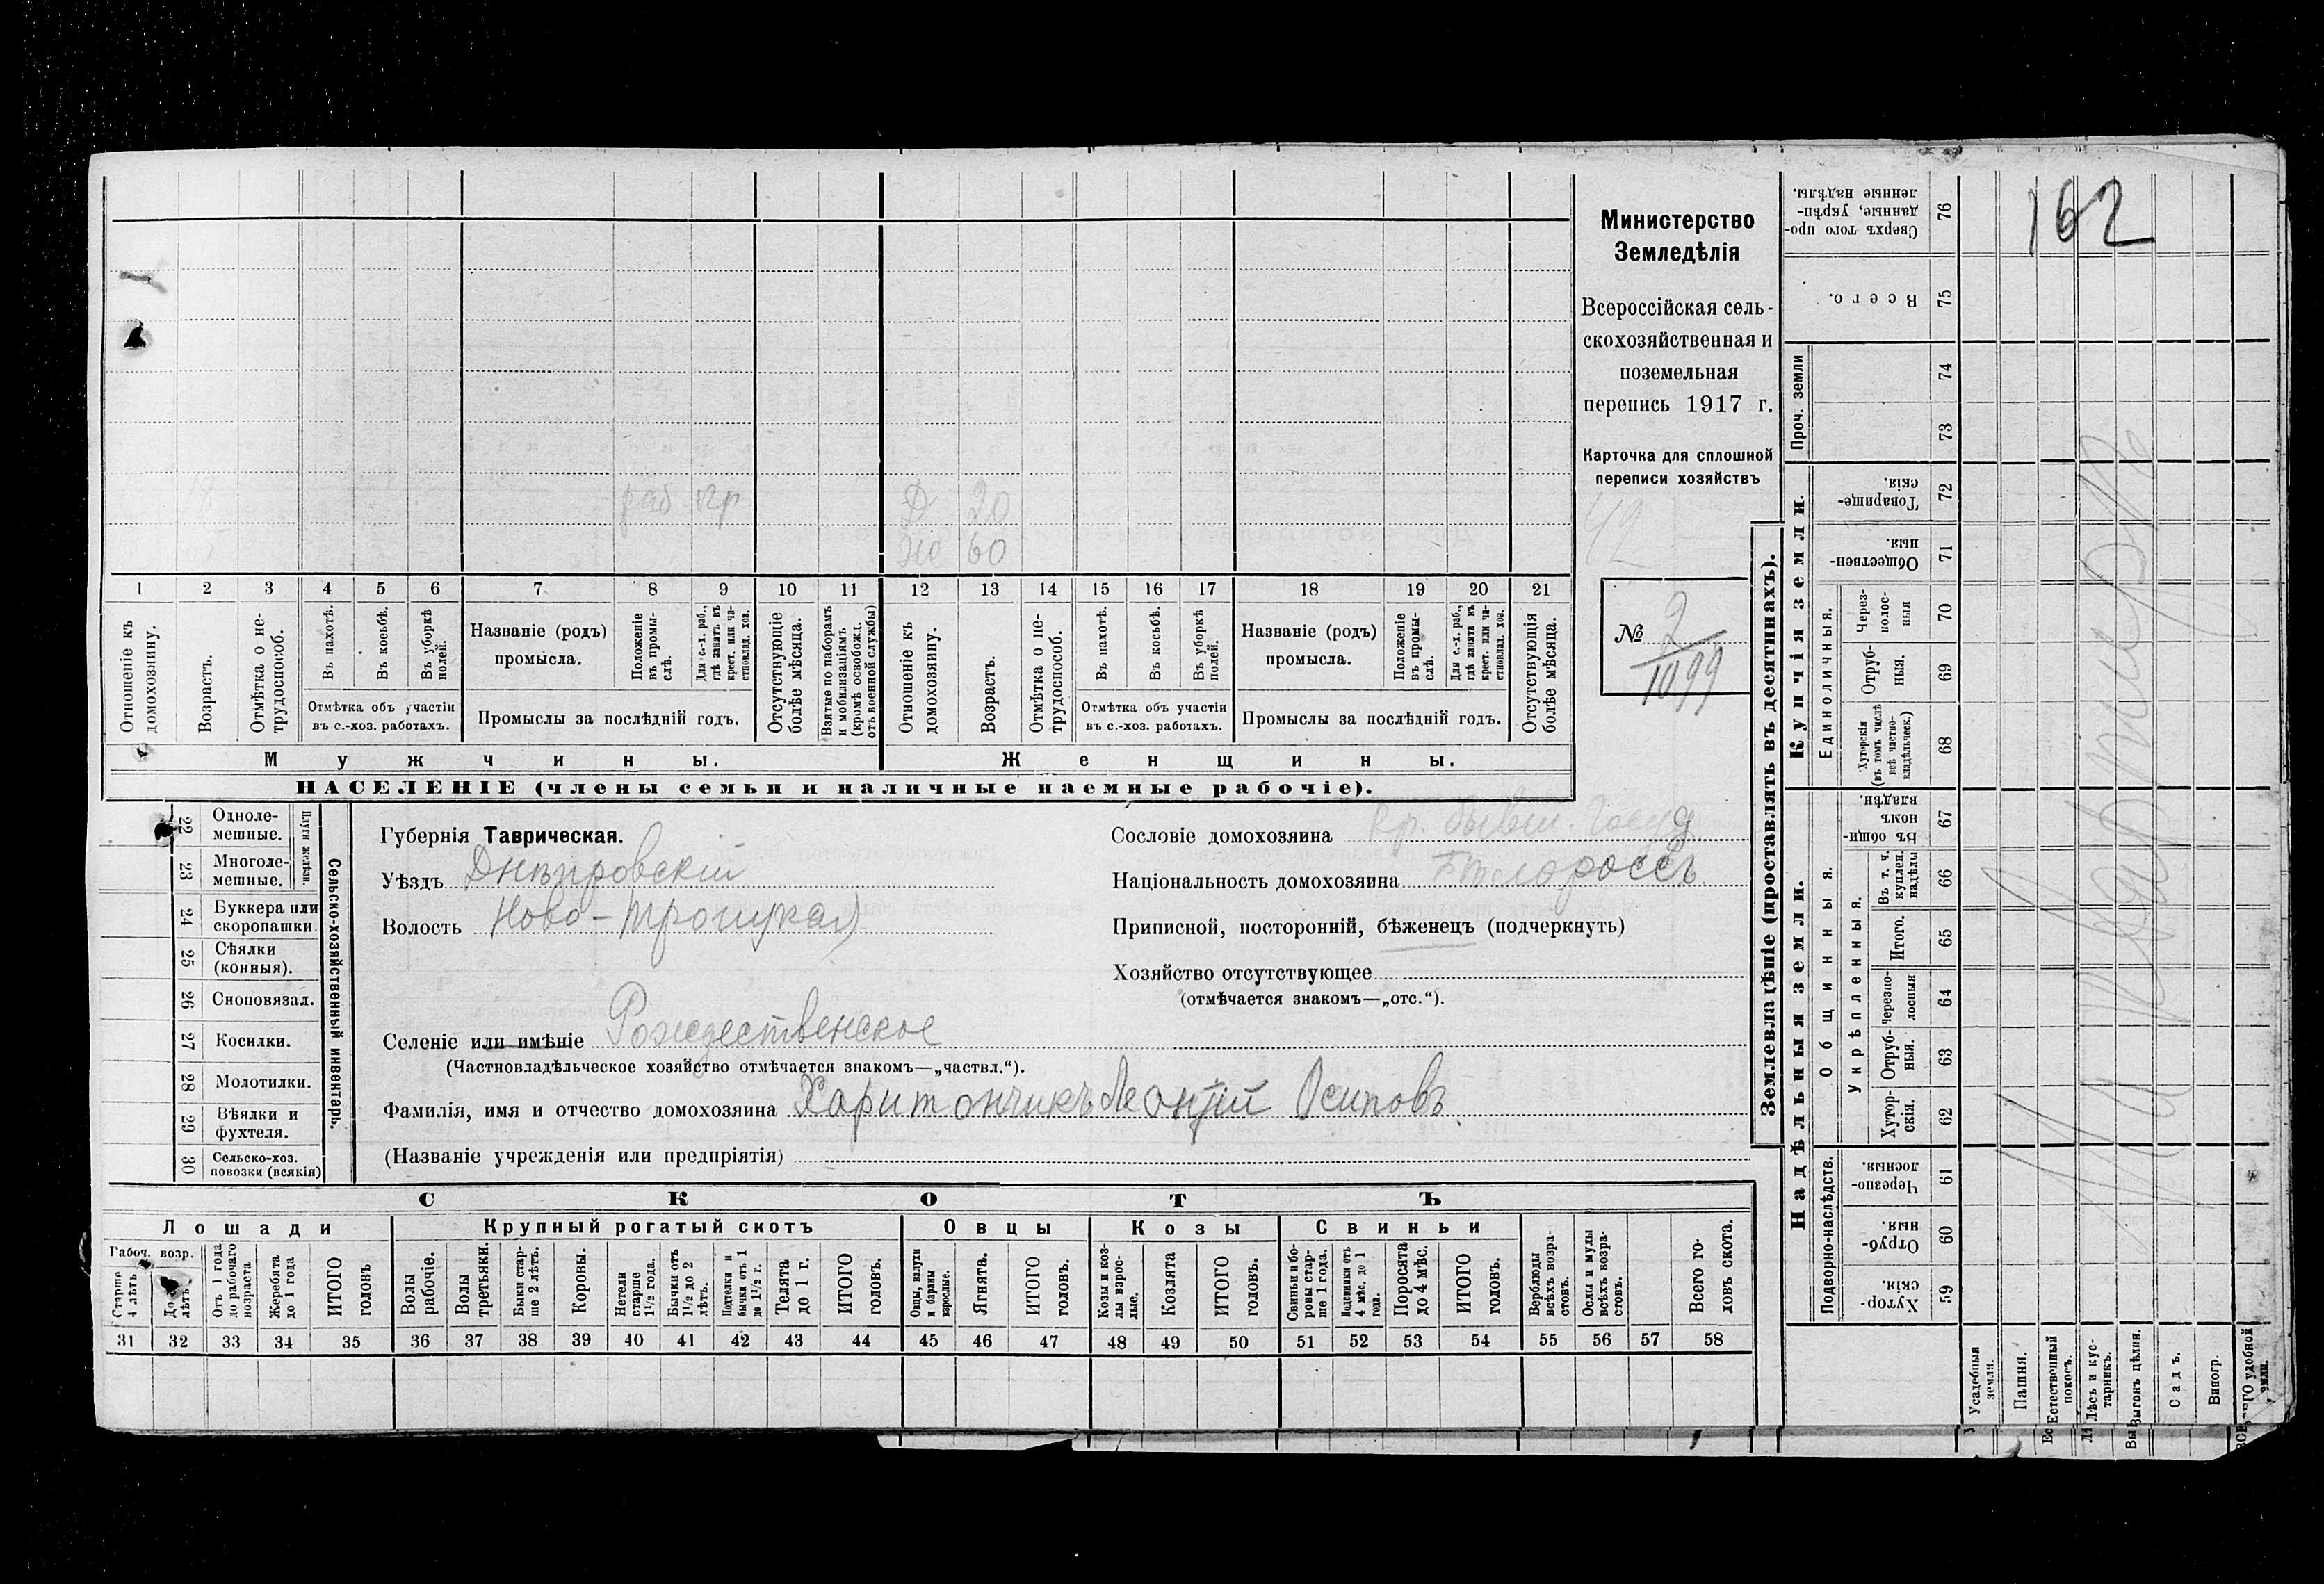 162
Министерство
Земледѣлія
Всероссійская сель-
скохозяйственная и
поземельная
перепись 1917 г.
Карточка для сплошной
переписи хозяйствъ
42
№ 2
1099
раб пр Д 20
Же 60
1 2 3 4 5 6 7 8 9 10 11 12 13 14 15 16 17 18 19 20 21
Отношеніе къ домохозяину.
Возрастъ.
Отмѣтка о не-трудоспособ.
Въ пахотѣ.
Въ косьбѣ.
Въ уборкѣ полей.
Отмѣтка объ участіи
въ с.-хоз. работахъ.
Названіе (родъ)
промысла.
Положеніе въ промы-слѣ.
Для с.-х. раб., гдѣ занятъ въ крест. или ча-стновлад. хоз.
Промыслы за послѣдній годъ.
Отсутствующіе болѣе мѣсяца.
Взятые по наборамъ и мобилизаціямъ (кромѣ освобожд. отъ военной службы)
Отношеніе къ домохозяину.
Возрастъ.
Отмѣтка о не-трудоспособ.
Въ пахотѣ.
Въ косьбѣ.
Въ уборкѣ полей.
Отмѣтка объ участіи
въ с.-хоз. работахъ.
Названіе (родъ)
промысла.
Положеніе въ промы-слѣ.
Для с.-х. раб., гдѣ занята въ крест. или ча-стновлад. хоз.
Промыслы за послѣдній годъ.
Отсутствующія болѣе мѣсяца.
Мужчины. Женщины.
НАСЕЛЕНІЕ (члены семьи и наличные наемные рабочіе).
Сельско-хозяйственный инвентарь.
Плуги желѣзн.
22 Одноле-мешные.
23 Многоле-мешные.
24 Буккера или скоропашки
25 Сѣялки (конныя).
26 Сноповязал.
27 Косилки.
28 Молотилки.
29 Вѣялки и фухтеля.
30 Сельско-хоз. повозки (всякія)
Губернія Таврическая.
Уѣздъ Днѣпровскій
Волость Ново-Троицкая
Селеніе или имѣніе Рождественское
(Частновладѣльческое хозяйство отмѣчается знакомъ—„частвл.“).
Фамилія, имя и отчество домохозяина Харитончикъ Леонтій Осиповъ
(Названіе учрежденія или предпріятія)
Сословіе домохозяина Кр. бывш. Госуд
Національность домохозяина Бѣлороссъ
Приписной, посторонній, бѣженецъ (подчеркнуть)
Хозяйство отсутствующее
(отмѣчается знакомъ—„отс.“).
СКОТЪ
Лошади Крупный рогатый скотъ Овцы Козы Свиньи
Рабоч. возр.
Старше 4 лѣтъ
До 4 лѣтъ
Отъ 1 года до рабочаго возраста
Жеребята до 1 года
ИТОГО головъ
Волы рабочіе.
Волы третьяки.
Быки стар-ше 2 лѣтъ.
Коровы.
Нетели старше 1½ года.
Бычки отъ 1½ до 2 лѣтъ.
Подтелки и бычки отъ 1 до 1½ г.
Телята до 1 г.
ИТОГО головъ.
Овцы, валухи и бараны взрослые.
Ягнята.
ИТОГО головъ.
Козы и коз-лы взрос-лые.
Козлята
ИТОГО головъ.
Свиньи и бо-ровы стар-ше 1 года.
Подсвинки отъ 4 мѣс. до 1 года.
Поросята до 4 мѣс.
ИТОГО головъ.
Верблюды всѣхъ возра-стовъ.
Ослы и мулы всѣхъ возра-стовъ.
Всего го-ловъ скота.
31 32 33 34 35 36 37 38 39 40 41 42 43 44 45 46 47 48 49 50 51 52 53 54 55 56 57 58
Землевладѣніе (проставлять въ десятинахъ).
Надѣльныя земли.
Купчія земли.
Проч. земли
Подворно-наслѣдств.
Общинныя.
Укрѣпленныя.
Единоличныя.
Сверхъ того про-данные, укрѣп-ленные надѣлы. 76
Всего. 75
74
73
Товарище-скія. 72
Обществен-ныя. 71
Через-полос-ныя 70
Отруб-ныя. 69
Хуторскія (въ томъ числѣ всѣ частно-владѣльческ.) 68
Въ общин-номъ владѣн. 67
Въ т. ч. куплен. надѣлы 66
Итого. 65
Черезпо-лосныя 64
Отруб-ныя. 63
Хутор-скія. 62
Черезпо-лосныя. 61
Отруб-ныя. 60
Хутор-скія. 59
На квартирѣ
Усадебныя земли.
Пашня.
Естественный покосъ.
Лѣсъ и кус-тарникъ.
Выгонъ цѣлин.
Садъ.
Виногр.
ВСЕГО удобной земли.